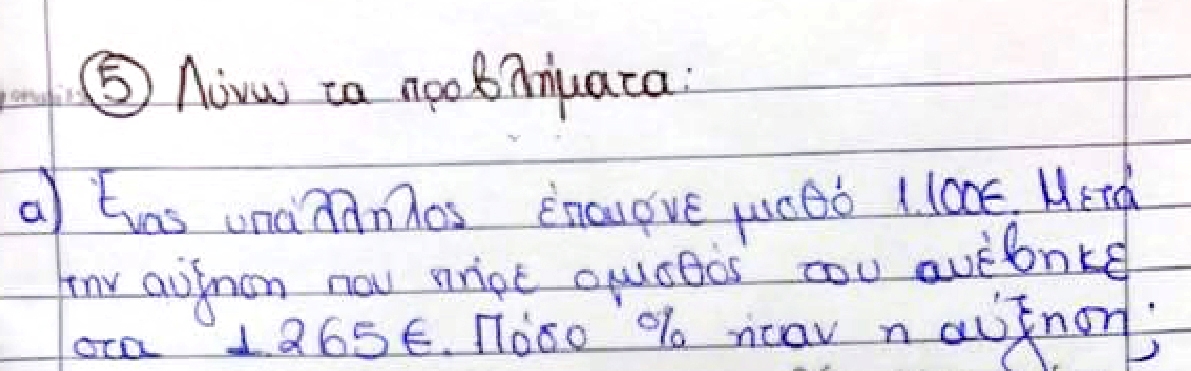 ⑤ Λύνω τα προβλήματα:
α) Ένας υπάλληλος έπαιρνε μισθό 1.100€. Μετά
την αύξηση που πήρε ο μισθός του ανέβηκε
στα 1.265€. Πόσο % ήταν η αύξηση;